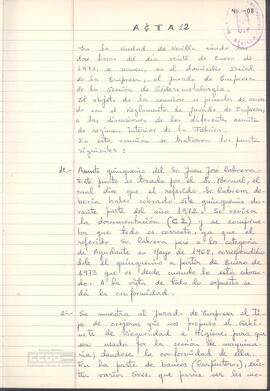 Nº 08
ACTA 12
En la ciudad de Sevilla siendo las
doce horas del dia veinte de Enero de
1973, se reunen, en el domicilio social
de la Empresa, el Jurado de Empresa
de la Sección de Siderometalurgia.
El objeto de la reunión es proceder de acuer-
do con el Reglamento de Jurado de Empresa,
a las discusiones de los diferentes asuntos
de regimen interior de la Fábrica.
En esta reunión se trataron los puntos
siguientes:
1º.- Asunto quinquenio del Sr. Juan José Cabrera
Este punto es tratado por el Sr. Bernal, el
cual dice que el referido Sr. Cabrera de-
beria haber cobrado este quinquenio du-
rante parte del año 1972. Se revisa
la documentación (C2) y se comprue-
ba que todo es correcto, ya que el
referido Sr. Cabrera pasó a la categoria
de Ayudante en Mayo de 1968, correspondien-
dole el quinquenio a partir de Enero de
1973 que es desde cuando lo esta abonan-
do. A la vista de todo lo expuesto se
dá la conformidad.
2º.- Se muestra al Jurado de Empresa el ti-
po de orejeras que nos propuso el Gabi-
nete de Seguridad e Higiene para que
sea usado por la sección de maquina-
ria, dandose la conformidad de ella.
En la parte de bancos (Carpinteros), exis-
ten varios Sres. que parece ser les mo-
CCOO